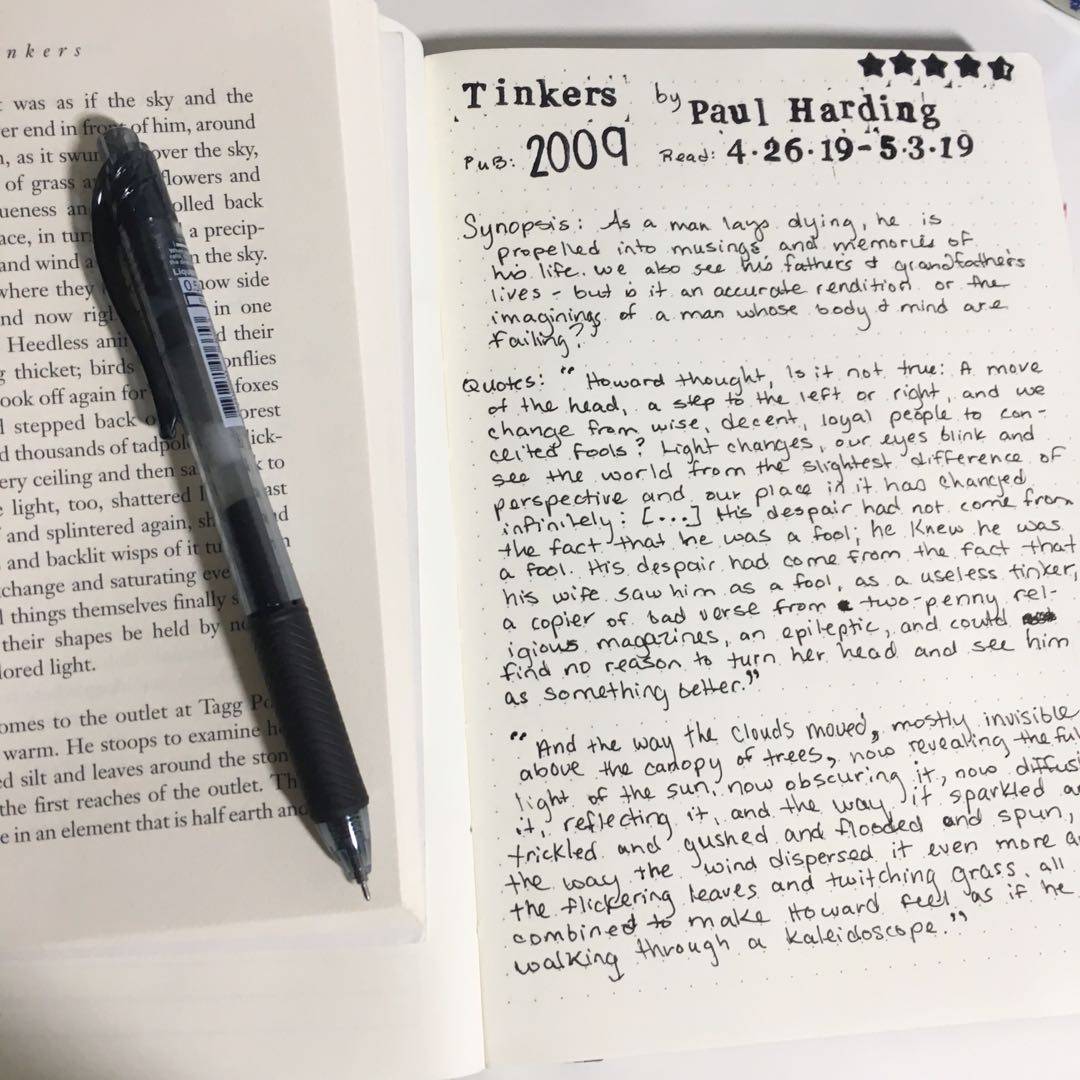 nkers
was as if the sky and the
er end in front of him, around
, as it swun over the sky,
of grass a flowers and
ueness an olled back
ace, in tur a precip-
and wind a n the sky.
where they now side
nd now rig in one
Heedless ani d their
g thicket; birds onflies
ook off again for foxes
d stepped back o orest
d thousands of tadpol lick-
ery ceiling and then sa k to
e light, too, shattered ast
f and splintered again, sh d
and backlit wisps of it tu
change and saturating eve
d things themselves finally s
their shapes be held by n
lored light.
omes to the outlet at Tagg Po
warm. He stoops to examine h
ed silt and leaves around the ston
the first reaches of the outlet. Th
e in an element that is half earth and
Liqu
0.5
Tinkers by Paul Harding
PUB: 2009 Read: 4·26·19-5·3·19
Synopsis: As a man lays dying, he is
propelled into musings and memories of
his life. we also see his fathers & grandfathers
lives - but is it an accurate rendition or the
imaginings of a man whose body & mind are
failing?
Quotes: "Howard thought, Is it not true: A move
of the head, a step to the left or right, and we
change from wise, decent, loyal people to con-
ceited fools? Light changes, our eyes blink and
see the world from the slightest difference of
perspective and our place in it has changed
infinitely: [...] His despair had not come from
the fact that he was a fool; he knew he was
a fool. His despair had come from the fact that
his wife saw him as a fool, as a useless tinker,
a copier of bad verse from two-penny rel-
igious magazines, an epileptic, and could
find no reason to turn her head and see him
as something better."
"And the way the clouds moved, mostly invisible
above the canopy of trees, now revealing the full
light of the sun, now obscuring it, now diffus
it, reflecting it, and the way it sparkled a
trickled and gushed and flooded and spun,
the way the wind dispersed it even more a
the flickering leaves and twitching grass, all
combined to make Howard feel as if he
walking through a kaleidoscope."